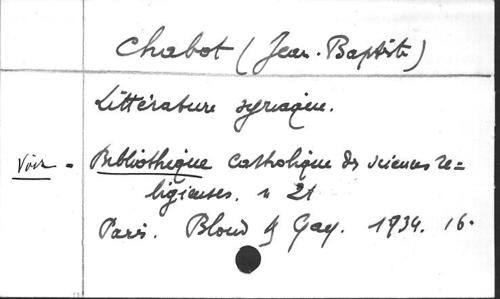 Chabot (Jean-Baptiste)
Littérature syriaque.
Voir - Bibliothique catholique des sciences re=
ligieuses. n 21
Paris. Bloud & Gay. 1934. 16.